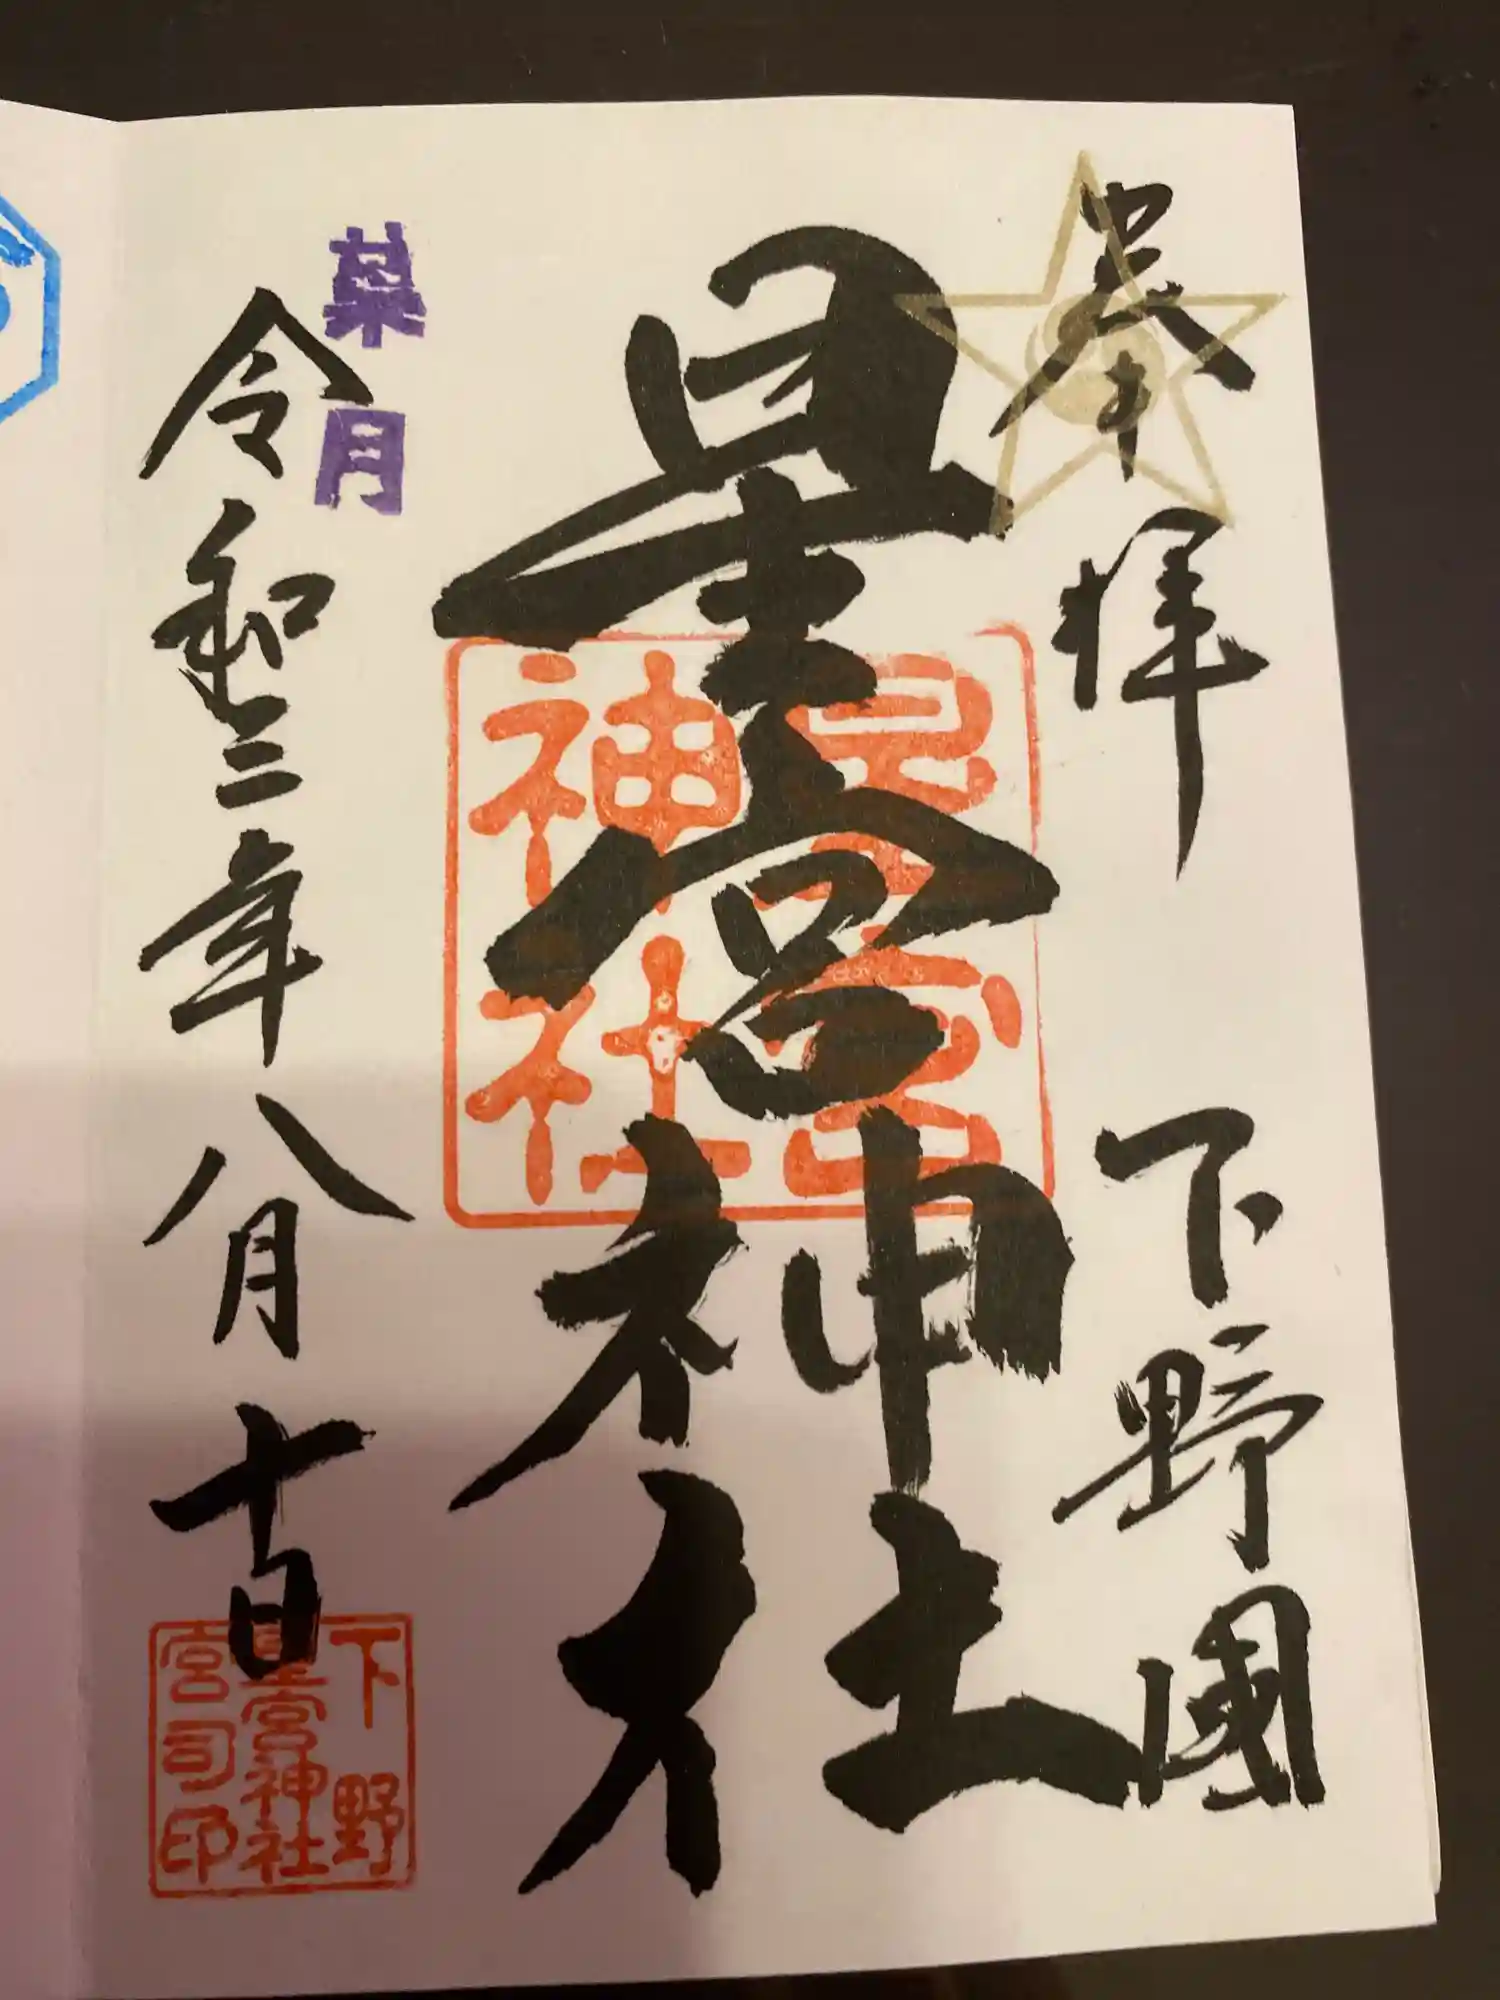 奉拝
下野國
星宮神社
星宮神社
葉月
令和二年八月十日
下野
星宮神社
宮司印